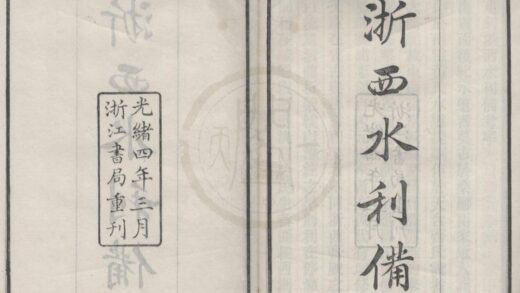 浙西水利備
光緒四年三月
浙江書局重刊